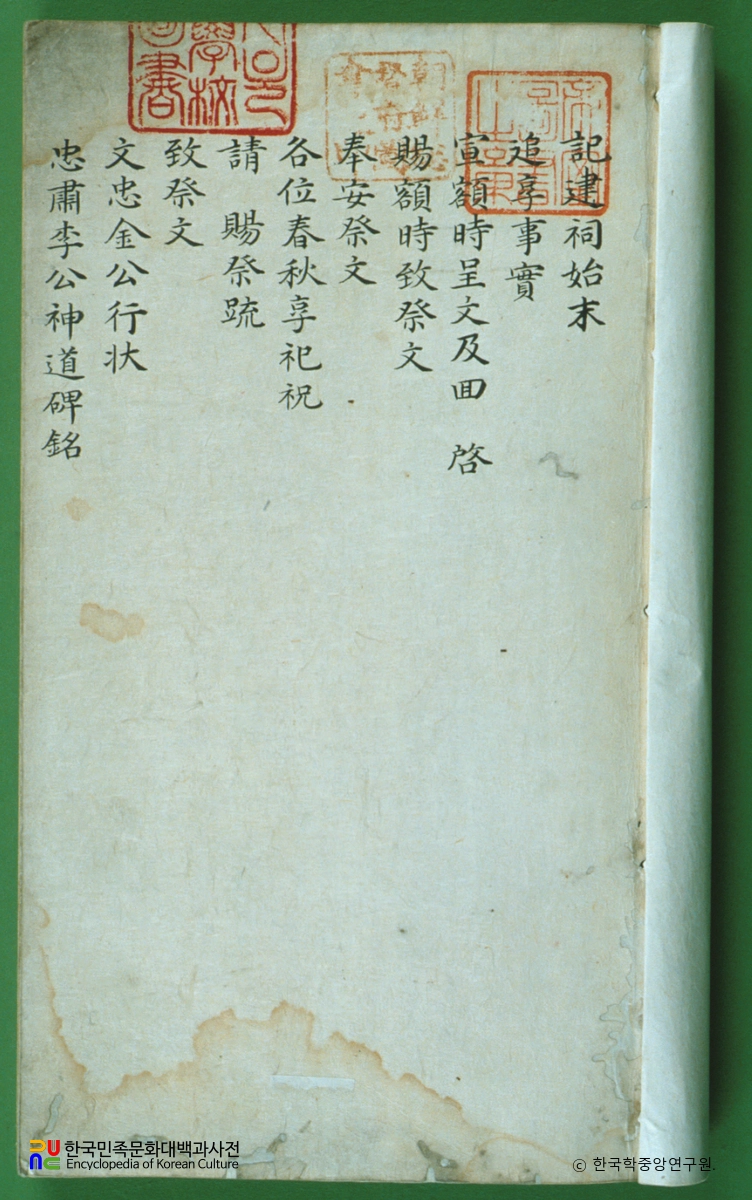 記建祠始末
追享事實
宣額時呈文及回 啓
賜額時致祭文
奉安祭文
各位春秋享祀祝
請 賜祭疏
致祭文
文忠金公行状
忠肅李公神道碑銘
한국민족문화대백과사전
Encyclopedia of Korean Culture
© 한국학중앙연구원.